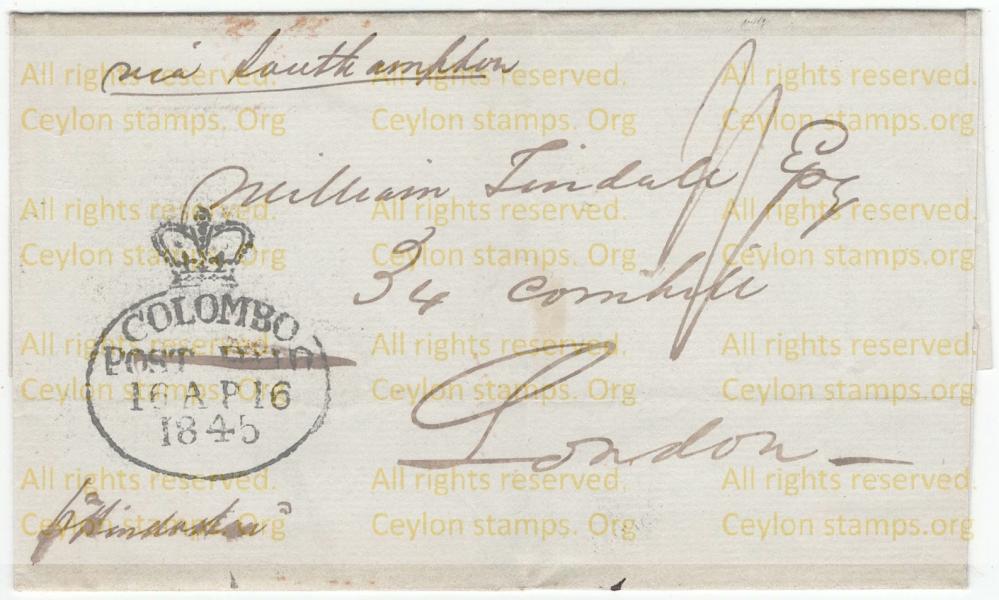 via Southampton
William Tindall Esq
34 Cornhill
London
COLOMBO
POST PAID
16 AP 16
1845
p "Hindostan"
All rights reserved. All rights reserved. All rights reserved.
Ceylon stamps. Org Ceylon stamps. Org Ceylon stamps.org
All rights reserved. All rights reserved. All rights reserved.
Ceylon stamps. Org Ceylon stamps. Org Ceylon stamps. Org
All rights reserved. All rights reserved. All rights reserved.
Ceylon stamps. Org Ceylon stamps. Org Ceylon stamps. Org
All rights reserved. All rights reserved. All rights reserved.
Ceylon stamps. Org Ceylon stamps. Org Ceylon stamps. Org